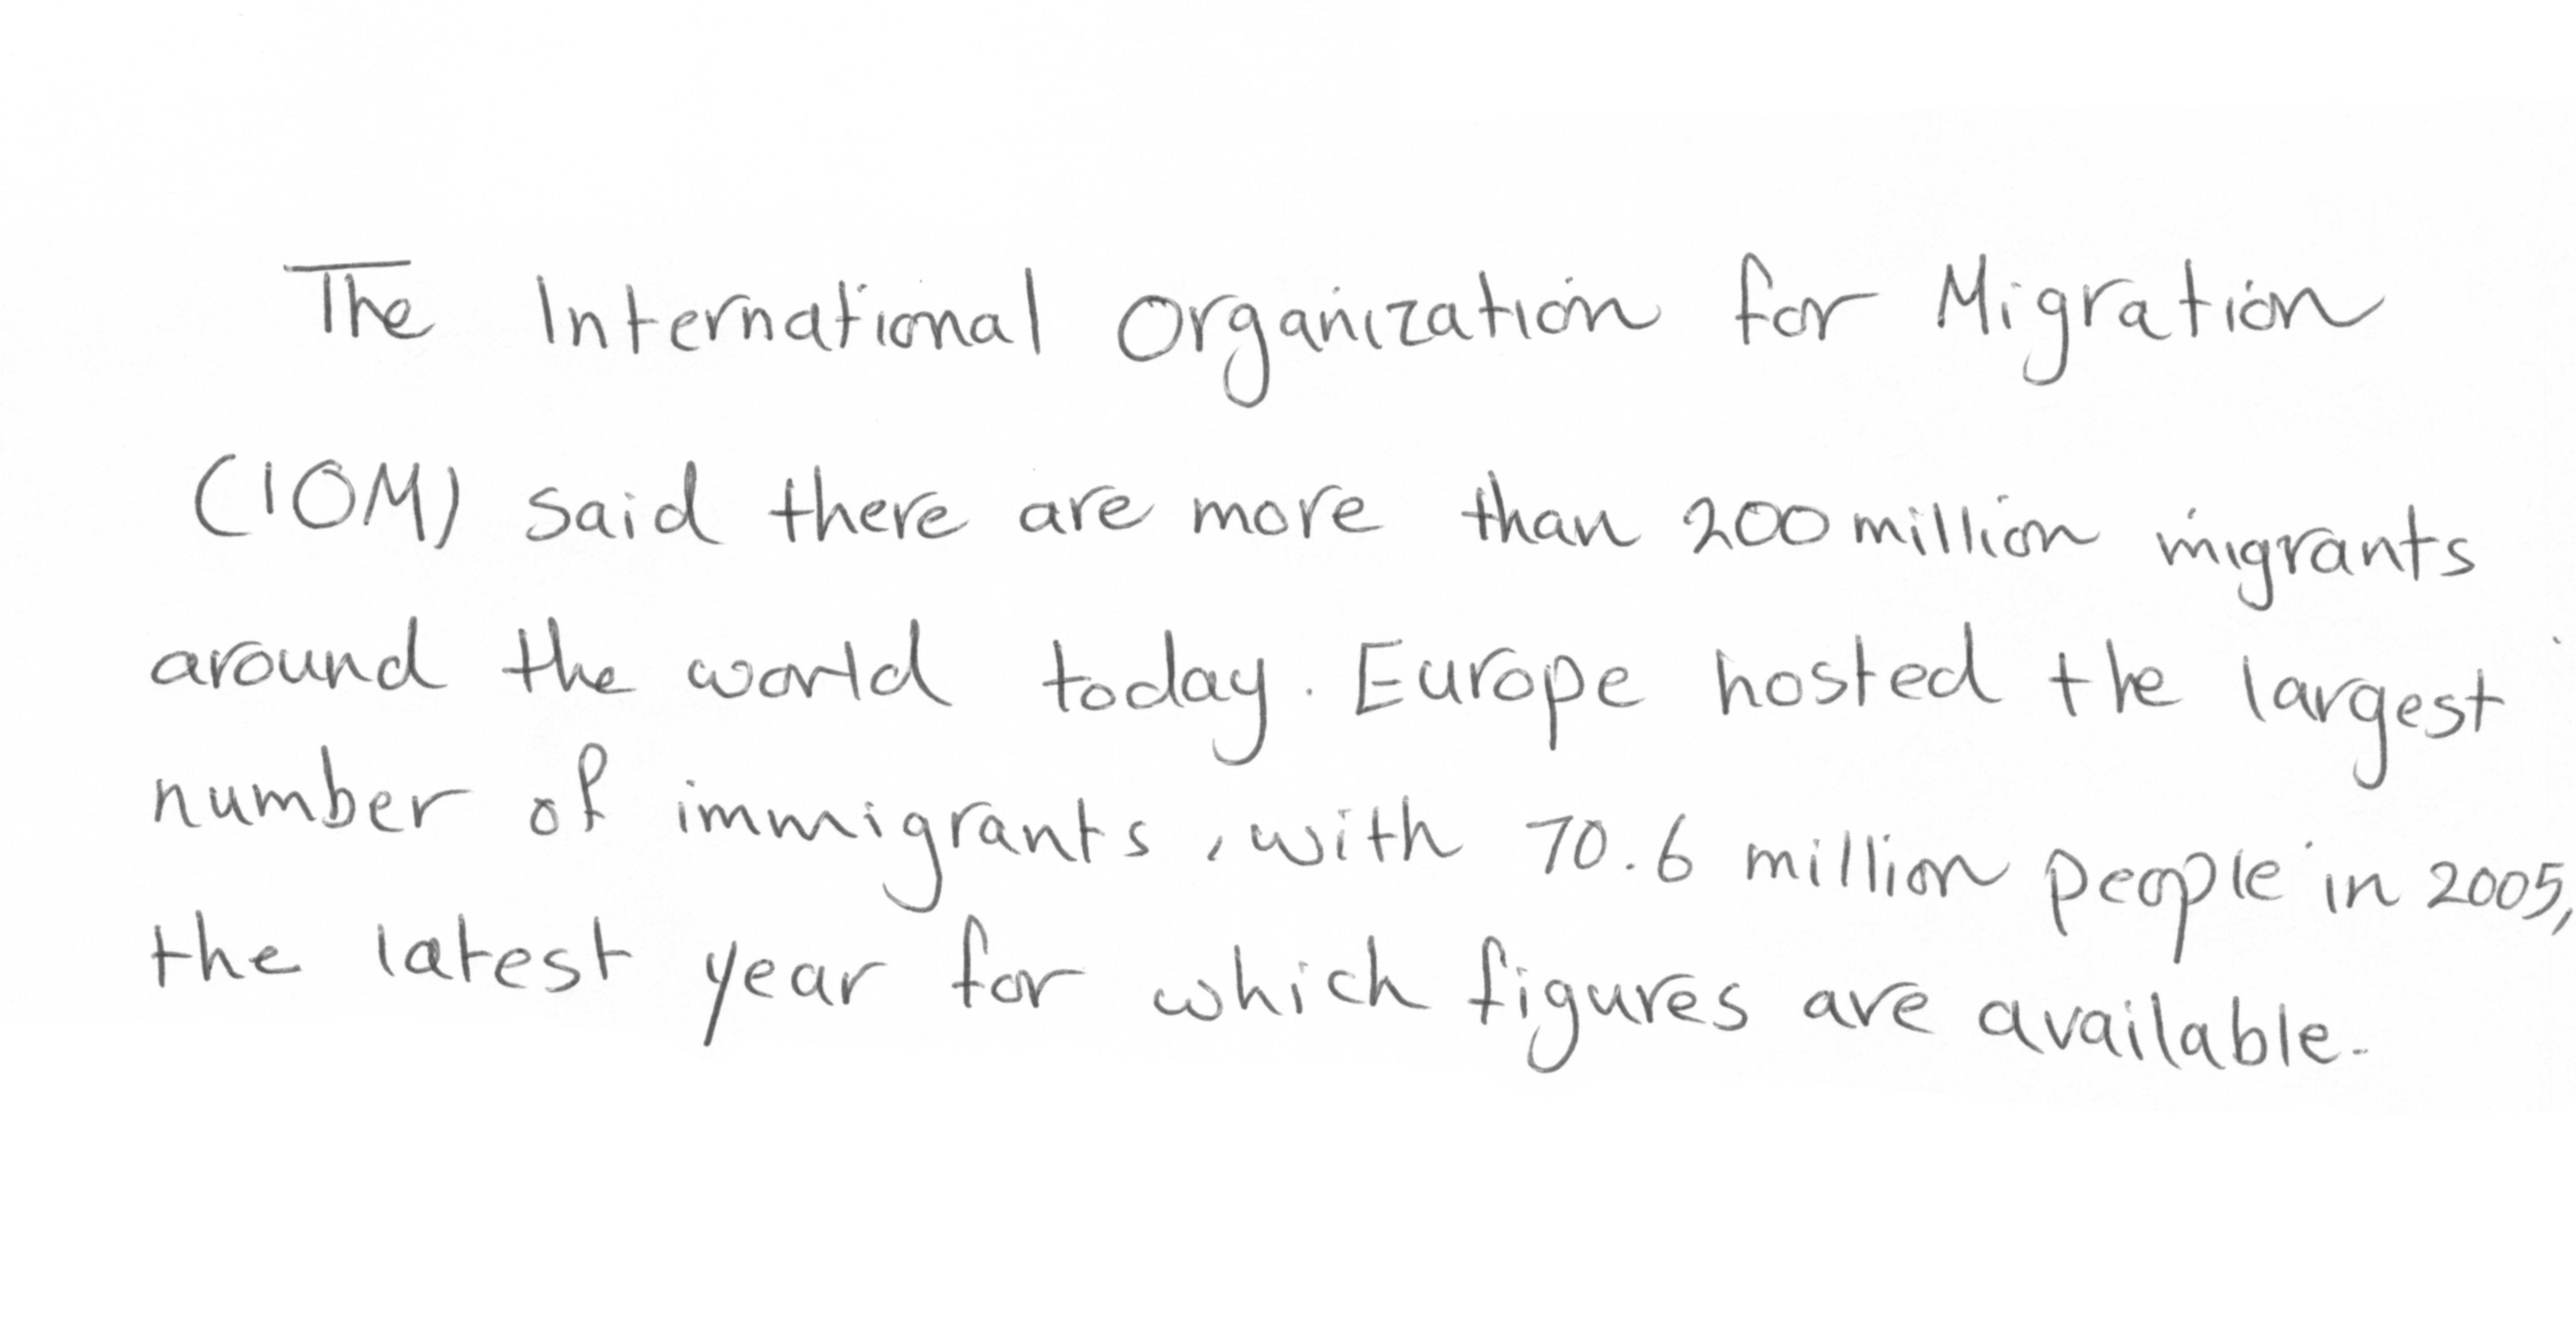 The International Organization for Migration
(IOM) said there are more than 200 million migrants
around the world today. Europe hosted the largest
number of immigrants, with 70.6 million people in 2005,
the latest year for which figures are available.